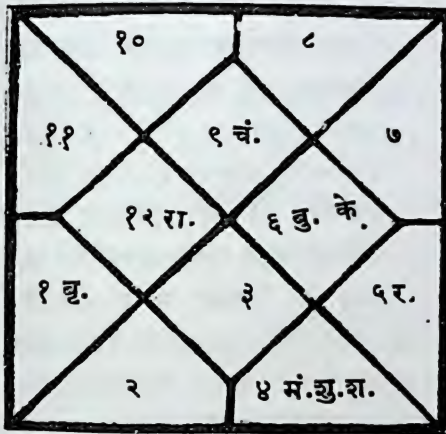 १० ८
११ ९ चं. ७
१२ रा. ६ बु. के.
१ बृ. ३ ५ र.
२ ४ मं.शु.श.